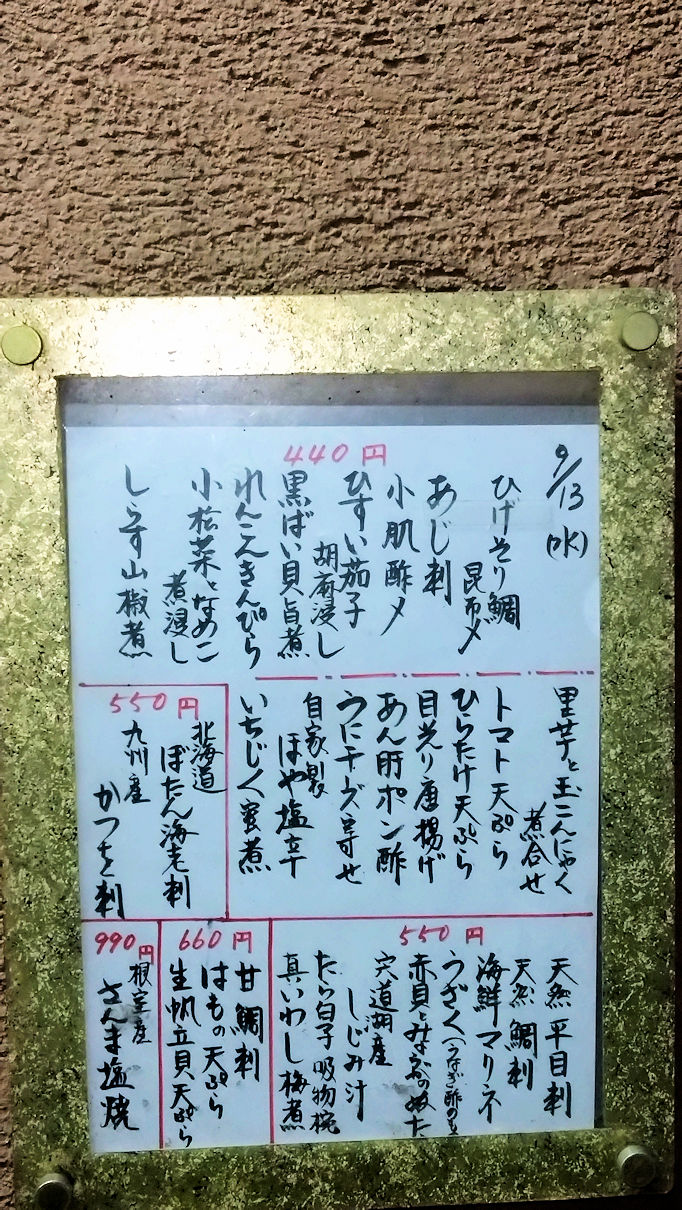 9/13(水)
440円
ひげそり鯛
昆布〆
あじ刺
小肌酢〆
ひすい茄子
胡麻浸し
黒ばい貝旨煮
れんこんきんぴら
小松菜となめこ
煮浸し
しらす山椒煮
里芋と玉こんにゃく
煮合せ
トマト天ぷら
ひらたけ天ぷら
目光り唐揚げ
あん肝ポン酢
うにチーズ寄せ
自家製
ほや塩辛
いちじく蜜煮
550円
北海道
ぼたん海老刺
九州産
かつを刺
550円
天然 平目刺
天然 鯛刺
海鮮マリネ
うざく(うなぎ酢のもの)
赤貝とみょうがのぬた
宍道湖産
しじみ汁
たら白子 吸物椀
真いわし梅煮
660円
甘鯛刺
はもの天ぷら
生帆立貝天ぷら
990円
根室産
さんま塩焼